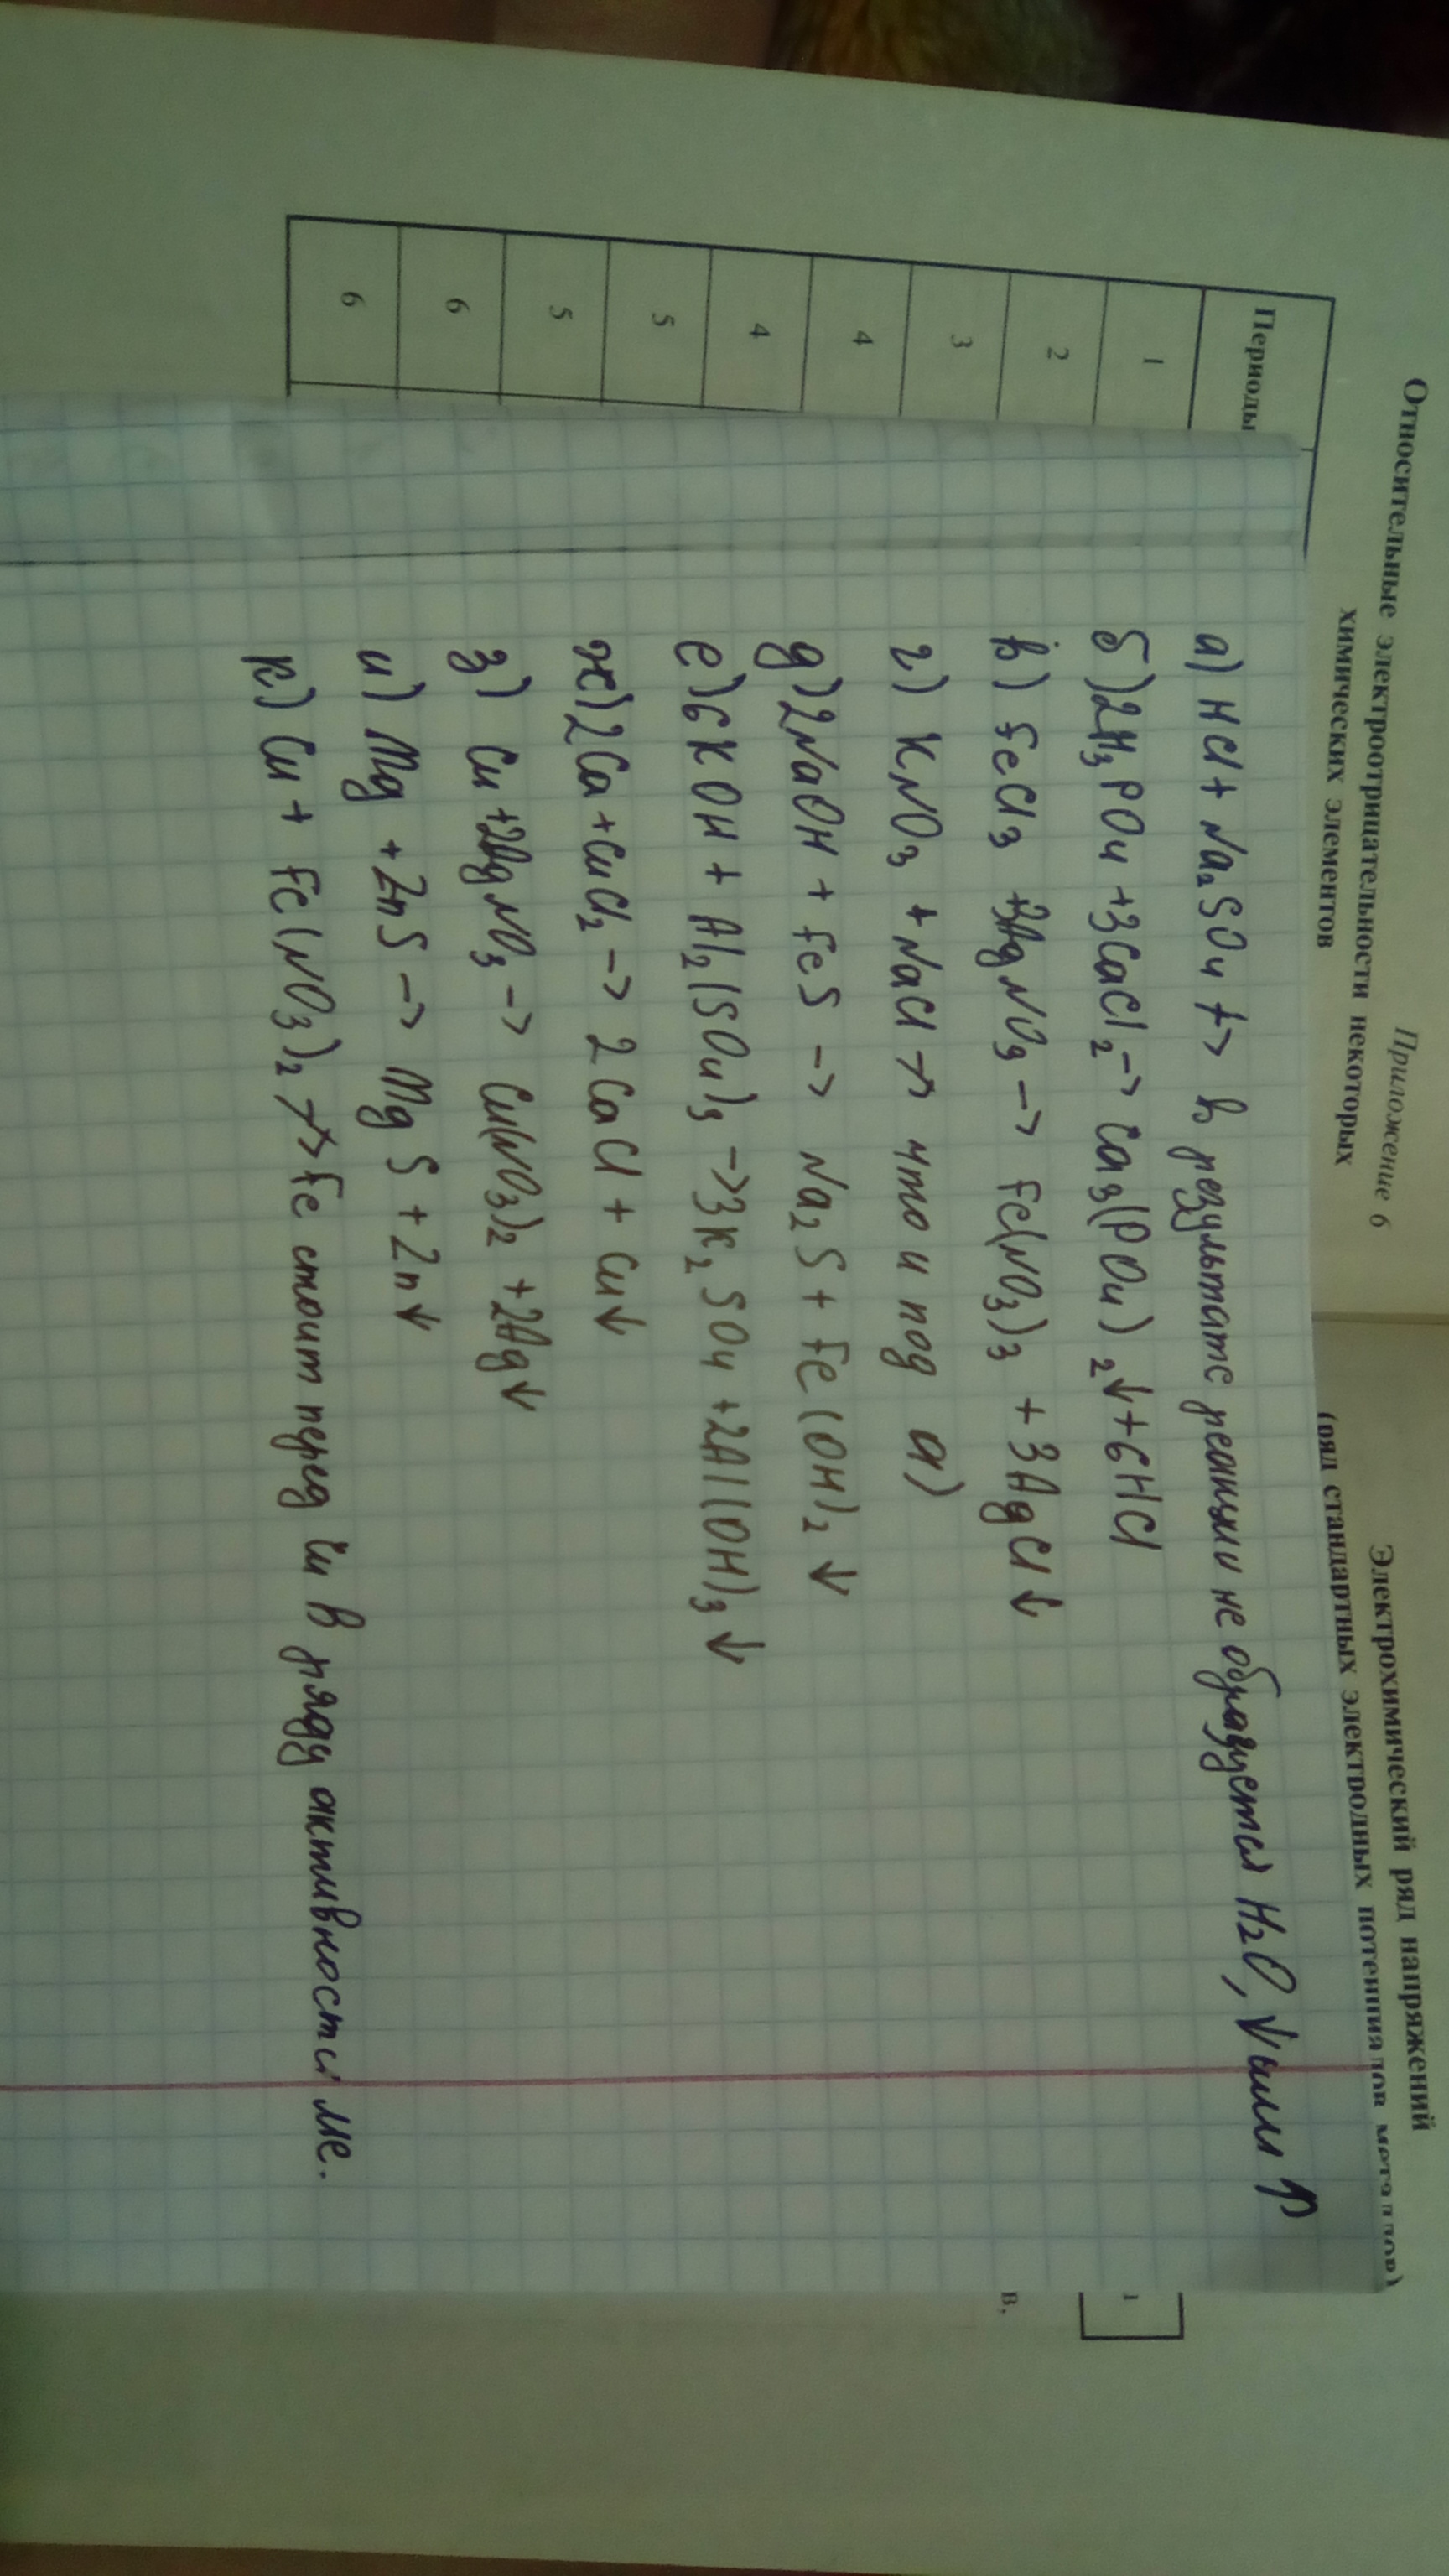 Приложение 6
Относительные электроотрицательности некоторых
химических элементов
Периоды
1
2
3
4
4
5
5
6
6
Электрохимический ряд напряжений
(ряд стандартных электродных потенциалов металлов)
1
В,
а) HCl + Na₂SO₄ ↛ в результате реакции не образуется H₂O, ↓ или ↑
б) 2H₃PO₄ + 3CaCl₂ → Ca₃(PO₄)₂↓ + 6HCl
в) FeCl₃ + 3AgNO₃ → Fe(NO₃)₃ + 3AgCl↓
г) KNO₃ + NaCl ↛ что и под а)
д) 2NaOH + FeS → Na₂S + Fe(OH)₂↓
е) 6KOH + Al₂(SO₄)₃ → 3K₂SO₄ + 2Al(OH)₃↓
ж) 2Ca + CuCl₂ → 2CaCl + Cu↓
з) Cu + 2AgNO₃ → Cu(NO₃)₂ + 2Ag↓
и) Mg + ZnS → MgS + Zn↓
к) Cu + Fe(NO₃)₂ ↛ Fe стоит перед Cu в ряду активности Ме.